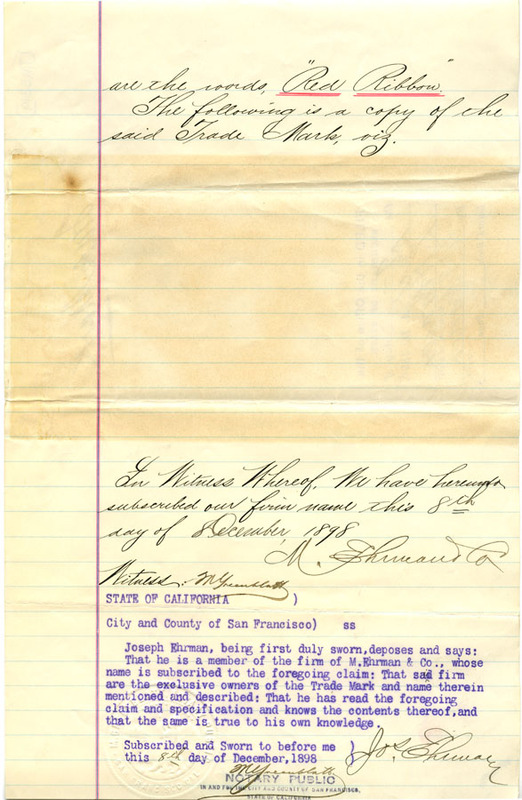 are the words, "Red Ribbon"
The following is a copy of the
said Trade Mark, viz.
In Witness Whereof, We have hereunto
subscribed our firm name this 8th
day of December, 1898
M. Ehrman & Co
Witness: M Greenblatt
STATE OF CALIFORNIA )
City and County of San Francisco) ss
Joseph Ehrman, being first duly sworn,deposes and says:
That he is a member of the firm of M.Ehrman & Co., whose
name is subscribed to the foregoing claim: That said firm
are the exclusive owners of the Trade Mark and name therein
mentioned and described: That he has read the foregoing
claim and specification and knows the contents thereof,and
that the same is true to his own knowledge.
Subscribed and Sworn to before me )
this 8th day of December,1898 )
Jos. Ehrman
M Greenblatt
NOTARY PUBLIC
IN AND FOR THE CITY AND COUNTY OF SAN FRANCISCO,
STATE OF CALIFORNIA